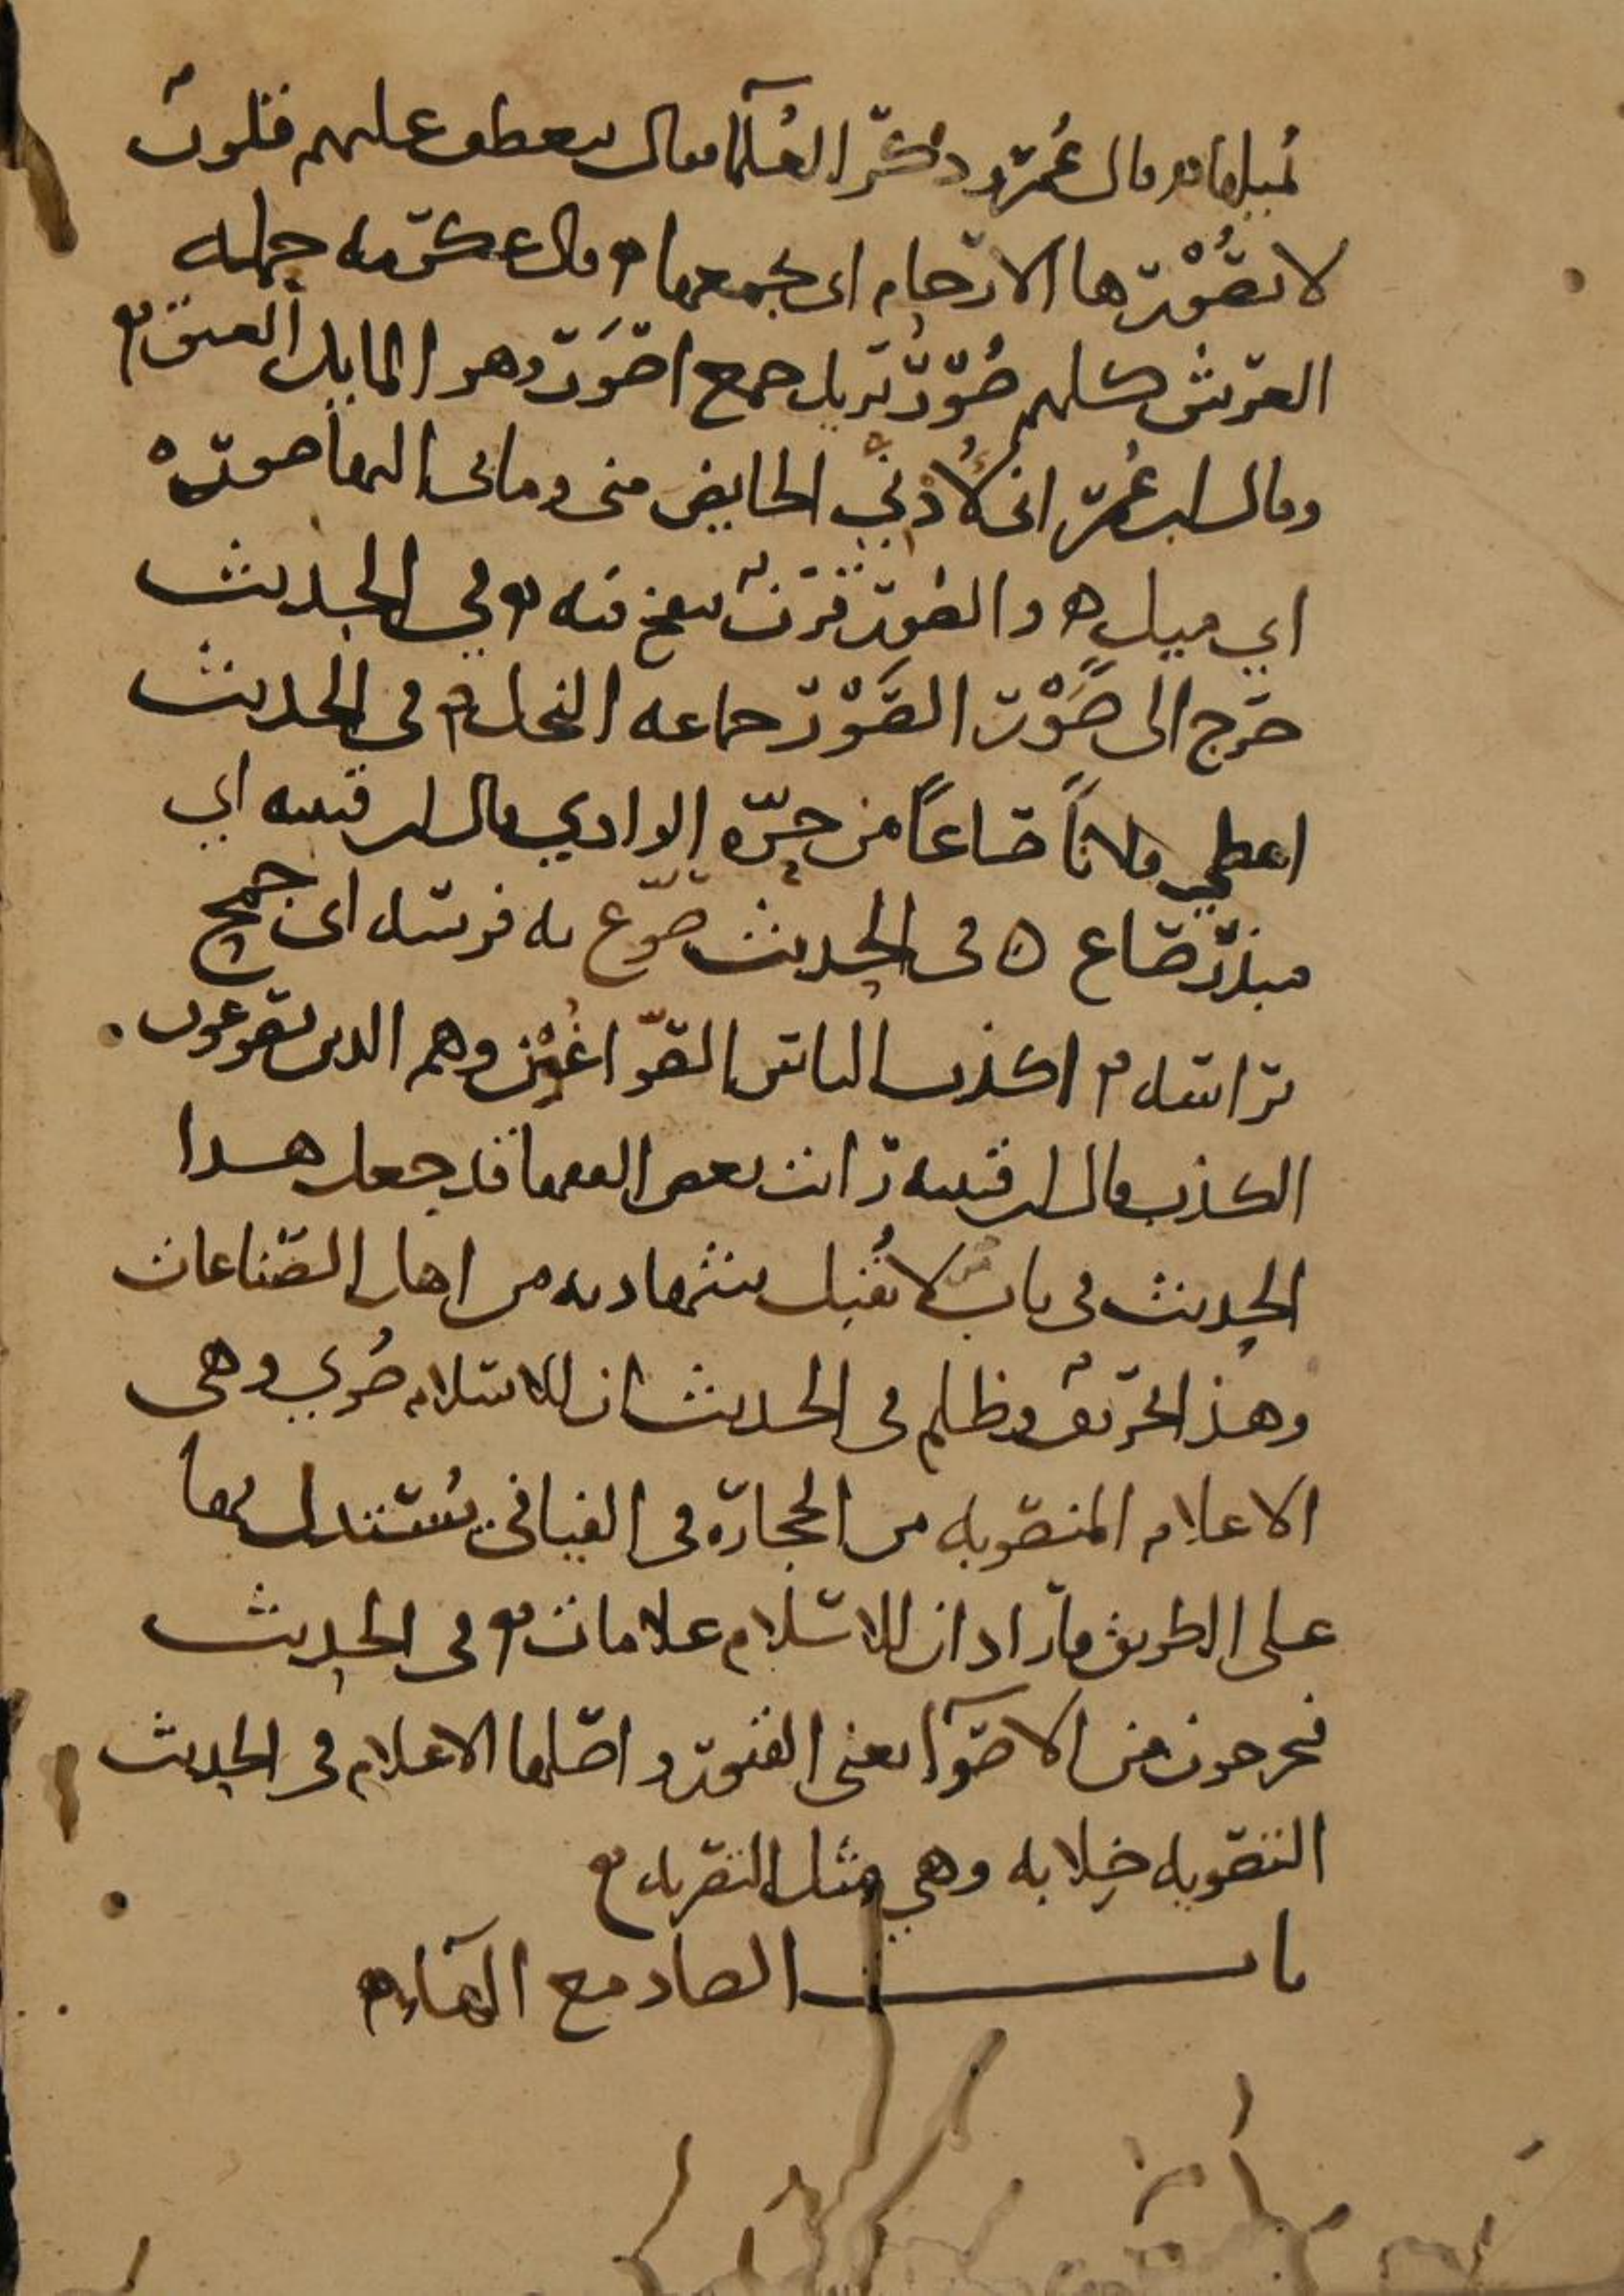 يميلها ٥ وقال عمر وذكر العلما فقال تنعطف عليهم قلوب
لا تصورها الارحام اي تجمعها ٥ وقال عكرمه حمله
العرش كلهم صور يريد جمع اصور وهو المايل العنق ٥
وقال ابن عمر اني لادني الحايض مني وما بي اليها صورة
اي ميل ٥ والصور قرن ينفخ فيه ٥ وفي الحديث
خرج الى صور الصور جماعه النخل ٥ في الحديث
اعطي فلانا صاعا من حرة الوادي قال ابن قتيبه اي
مبذر صاع ٥ في الحديث صوع به فرسه اي جمح
براسه ٥ اكذب الناس الصواغين وهم الذين يصوغون
الكذب قال ابن قتيبه رايت بعض الفقها قد جعل هذا
الحديث في باب من لا تقبل شهادته من اهل الصناعات
وهذا تحريف وظلم في الحديث ان للاسلام صوي وهي
الاعلام المنصوبه من الحجارة في الفيافي يستدل بها
على الطريق فاراد ان للاسلام علامات ٥ في الحديث
فيخرجون من الاصوآ يعني القبور واصلها الاعلام في الحديث
التصويه خلابه وهي مثل التصريه ٥
باب الصاد مع الهآء ٥